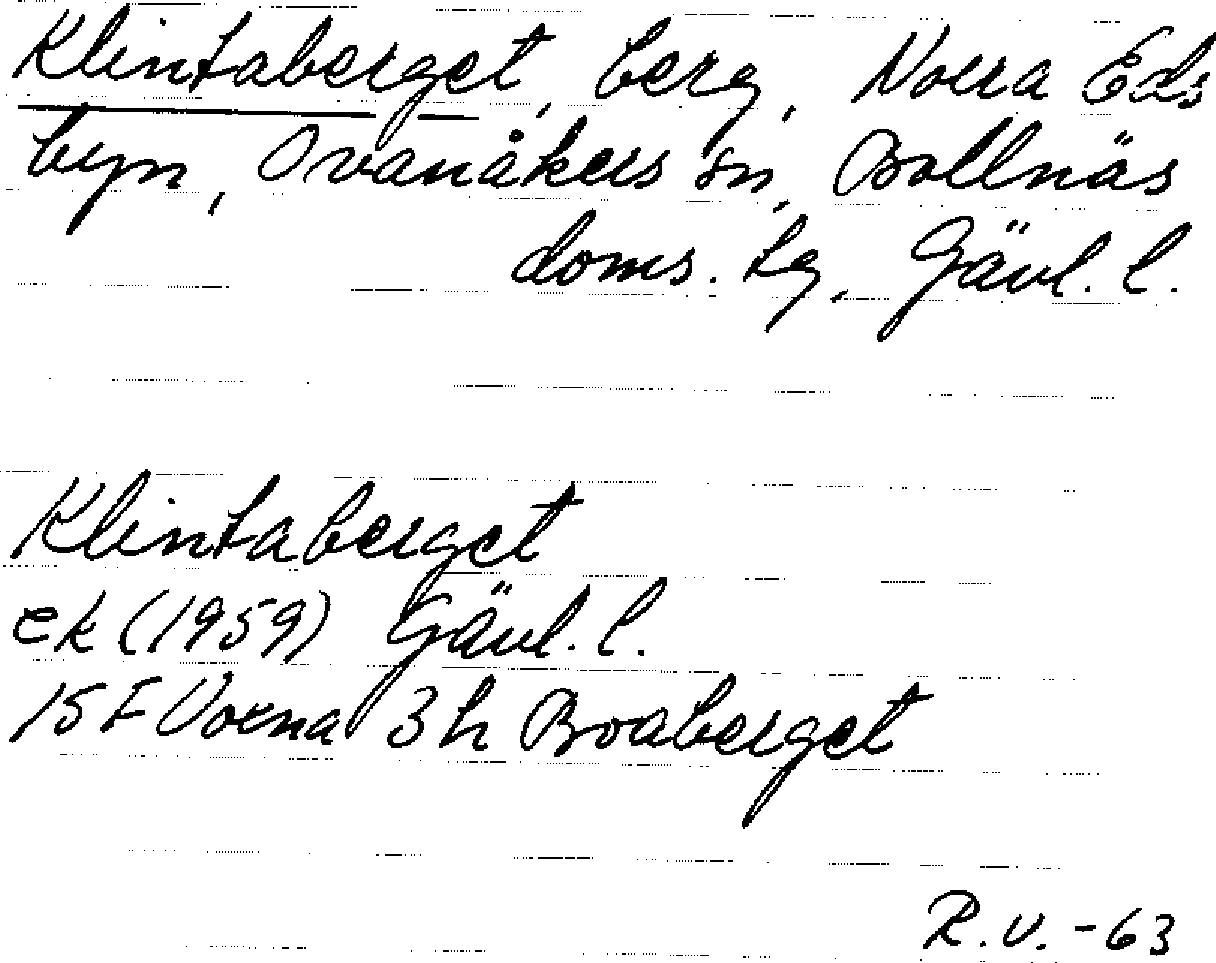 Klintaberget, berg, Norra Eds
byn, Ovanåkers sn, Bollnäs
doms. tg, Gävl. l.
Klintaberget
ek (1959) Gävl. l.
15 F Voxna 3h Boaberget
R.V. -63